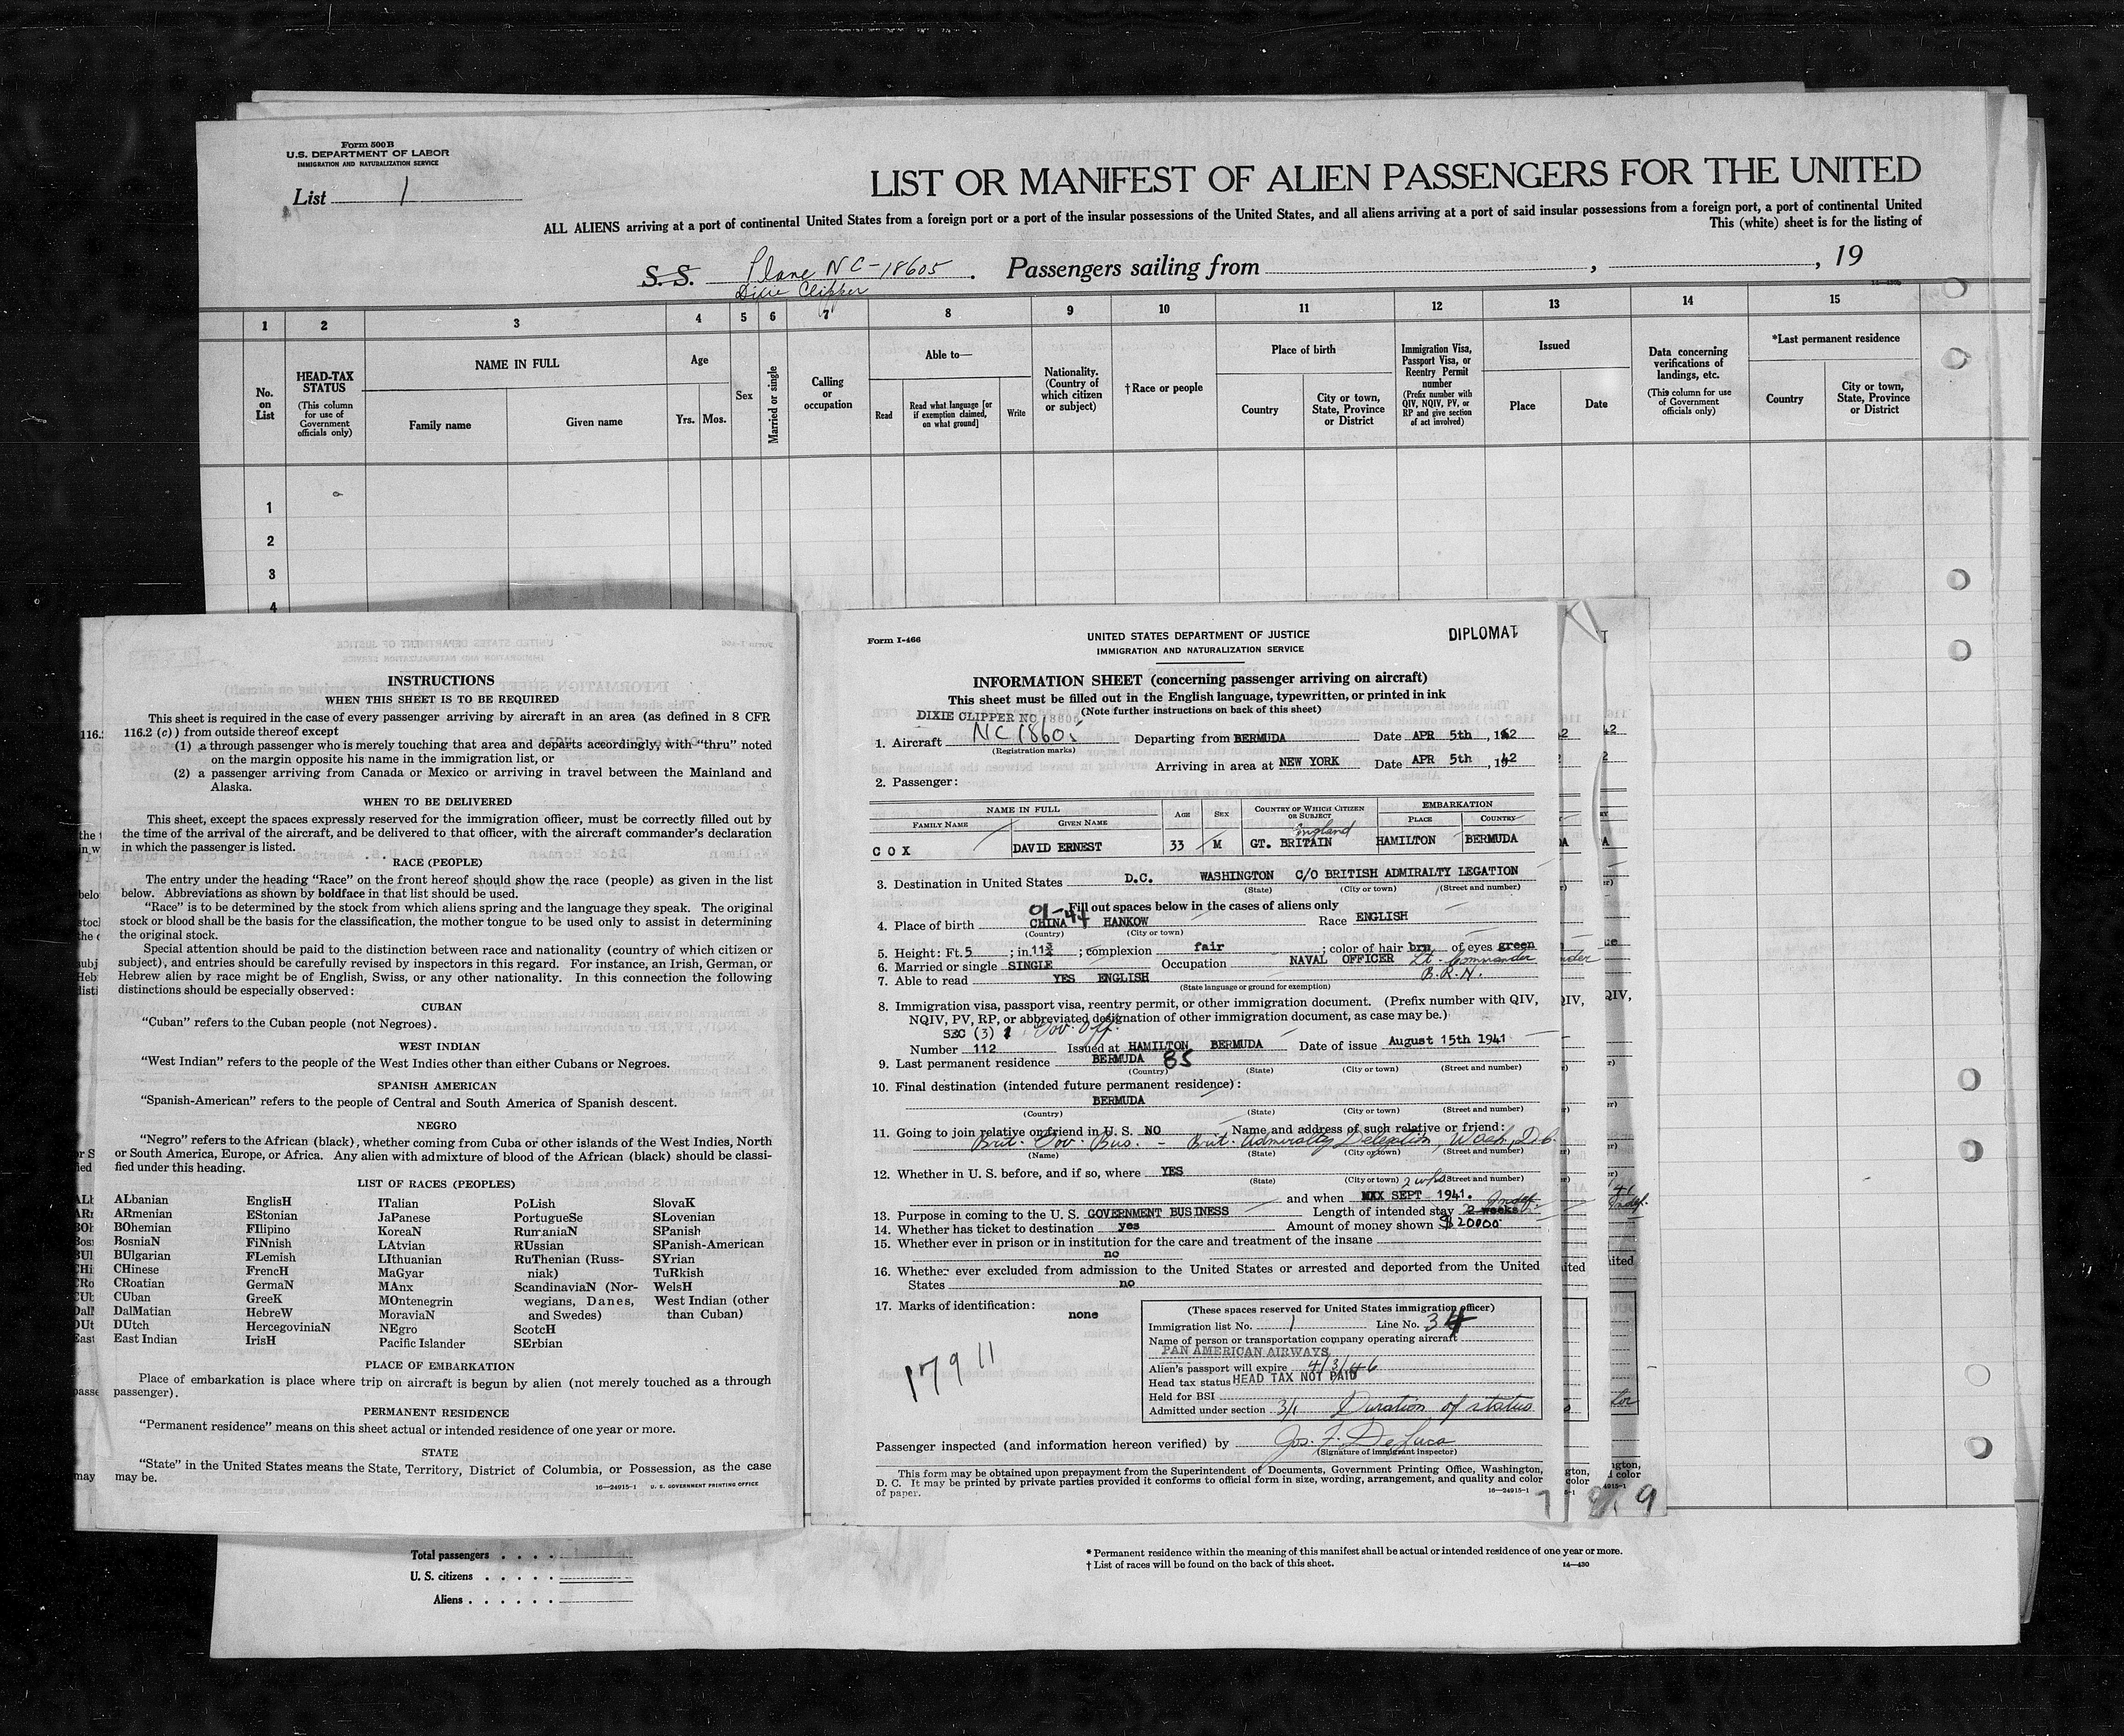 Form 500B
U.S. DEPARTMENT OF LABOR
IMMIGRATION AND NATURALIZATION SERVICE
List 1
LIST OR MANIFEST OF ALIEN PASSENGERS FOR THE UNITED
ALL ALIENS arriving at a port of continental United States from a foreign port or a port of the insular possessions of the United States, and all aliens arriving at a port of said insular possessions from a foreign port, a port of continental United
This (white) sheet is for the listing of
S. S. Plane NC-18605 . Passengers sailing from , , 19
Dixie Clipper
14—430b
1 2 3 4 5 6 7 8 9 10 11 12 13 14 15
No. on List
HEAD-TAX STATUS
(This column for use of Government officials only)
NAME IN FULL
Family name
Given name
Age
Yrs. Mos.
Sex
Married or single
Calling or occupation
Able to—
Read
Read what language [or if exemption claimed, on what ground]
Write
Nationality. (Country of which citizen or subject)
†Race or people
Place of birth
Country
City or town, State, Province or District
Immigration Visa, Passport Visa, or Reentry Permit number
(Prefix number with QIV, NQIV, PV, or RP and give section of act involved)
Issued
Place
Date
Data concerning verifications of landings, etc.
(This column for use of Government officials only)
*Last permanent residence
Country
City or town, State, Province or District
1
2
3
4
INSTRUCTIONS
WHEN THIS SHEET IS TO BE REQUIRED
This sheet is required in the case of every passenger arriving by aircraft in an area (as defined in 8 CFR
116.2 (c)) from outside thereof except
(1) a through passenger who is merely touching that area and departs accordingly, with “thru” noted
on the margin opposite his name in the immigration list, or
(2) a passenger arriving from Canada or Mexico or arriving in travel between the Mainland and
Alaska.
WHEN TO BE DELIVERED
This sheet, except the spaces expressly reserved for the immigration officer, must be correctly filled out by
the time of the arrival of the aircraft, and be delivered to that officer, with the aircraft commander’s declaration
in which the passenger is listed.
RACE (PEOPLE)
The entry under the heading “Race” on the front hereof should show the race (people) as given in the list
below. Abbreviations as shown by boldface in that list should be used.
“Race” is to be determined by the stock from which aliens spring and the language they speak. The original
stock or blood shall be the basis for the classification, the mother tongue to be used only to assist in determining
the original stock.
Special attention should be paid to the distinction between race and nationality (country of which citizen or
subject), and entries should be carefully revised by inspectors in this regard. For instance, an Irish, German, or
Hebrew alien by race might be of English, Swiss, or any other nationality. In this connection the following
distinctions should be especially observed:
CUBAN
“Cuban” refers to the Cuban people (not Negroes).
WEST INDIAN
“West Indian” refers to the people of the West Indies other than either Cubans or Negroes.
SPANISH AMERICAN
“Spanish-American” refers to the people of Central and South America of Spanish descent.
NEGRO
“Negro” refers to the African (black), whether coming from Cuba or other islands of the West Indies, North
or South America, Europe, or Africa. Any alien with admixture of blood of the African (black) should be classi-
fied under this heading.
LIST OF RACES (PEOPLES)
ALbanian
ARmenian
BOhemian
BosniaN
BUlgarian
CHinese
CRoatian
CUban
DalMatian
DUtch
East Indian
EnglisH
EStonian
FIlipino
FiNnish
FLemish
FrencH
GermaN
GreeK
HebreW
HercegoviniaN
IrisH
ITalian
JaPanese
KoreaN
LAtvian
LIthuanian
MaGyar
MAnx
MOntenegrin
MoraviaN
NEgro
Pacific Islander
PoLish
PortugueSe
RumaniaN
RUssian
RuThenian (Russ-
niak)
ScandinaviaN (Nor-
wegians, Danes,
and Swedes)
ScotcH
SErbian
SlovaK
SLovenian
SPanish
SPanish-American
SYrian
TuRkish
WelsH
West Indian (other
than Cuban)
PLACE OF EMBARKATION
Place of embarkation is place where trip on aircraft is begun by alien (not merely touched as a through
passenger).
PERMANENT RESIDENCE
“Permanent residence” means on this sheet actual or intended residence of one year or more.
STATE
“State” in the United States means the State, Territory, District of Columbia, or Possession, as the case
may be.
16—24915-1 U. S. GOVERNMENT PRINTING OFFICE
Form I-466
UNITED STATES DEPARTMENT OF JUSTICE
IMMIGRATION AND NATURALIZATION SERVICE
DIPLOMAT
INFORMATION SHEET (concerning passenger arriving on aircraft)
This sheet must be filled out in the English language, typewritten, or printed in ink
(Note further instructions on back of this sheet)
DIXIE CLIPPER NC 18605
1. Aircraft NC 1860 Departing from BERMUDA Date APR 5th , 1942
(Registration marks)
Arriving in area at NEW YORK Date APR 5th , 1942
2. Passenger:
NAME IN FULL
FAMILY NAME
GIVEN NAME
AGE
SEX
COUNTRY OF WHICH CITIZEN OR SUBJECT
EMBARKATION
PLACE
COUNTRY
England
COX DAVID ERNEST 33 M GT. BRITAIN HAMILTON BERMUDA
3. Destination in United States D.C. WASHINGTON C/O BRITISH ADMIRALTY LEGATION
(State) (City or town) (Street and number)
Fill out spaces below in the cases of aliens only
01-44
4. Place of birth CHINA HANKOW Race ENGLISH
(Country) (City or town)
5. Height: Ft. 5 ; in. 11¾ ; complexion fair ; color of hair brn of eyes green
6. Married or single SINGLE Occupation NAVAL OFFICER Lt. Commander
B.R.N.
7. Able to read YES ENGLISH
(State language or ground for exemption)
8. Immigration visa, passport visa, reentry permit, or other immigration document. (Prefix number with QIV,
NQIV, PV, RP, or abbreviated designation of other immigration document, as case may be.)
SEC (3) 1 Gov. Off.
Number 112 Issued at HAMILTON BERMUDA Date of issue August 15th 1941
9. Last permanent residence BERMUDA 85
(Country) (State) (City or town) (Street and number)
10. Final destination (intended future permanent residence):
BERMUDA
(Country) (State) (City or town) (Street and number)
11. Going to join relative or friend in U. S. NO Name and address of such relative or friend:
Brit. Gov. Bus. - Brit. Admiralty Delegation, Wash, D.C.
(Name) (State) (City or town) (Street and number)
12. Whether in U. S. before, and if so, where YES
(State) (City or town) (Street and number)
2 wks
and when XXX SEPT 1941.
13. Purpose in coming to the U. S. GOVERNMENT BUSINESS Length of intended stay 2 weeks Indef.
14. Whether has ticket to destination yes Amount of money shown $ 20000
15. Whether ever in prison or in institution for the care and treatment of the insane
no
16. Whether ever excluded from admission to the United States or arrested and deported from the United
States no
17. Marks of identification: none
17911
(These spaces reserved for United States immigration officer)
Immigration list No. 1 Line No. 34
Name of person or transportation company operating aircraft
PAN AMERICAN AIRWAYS
Alien’s passport will expire 4/3/46
Head tax status HEAD TAX NOT PAID
Held for BSI
Admitted under section 3/1 Duration of status
Passenger inspected (and information hereon verified) by Jos. F. DeLuca
(Signature of immigrant inspector)
This form may be obtained upon prepayment from the Superintendent of Documents, Government Printing Office, Washington,
D. C. It may be printed by private parties provided it conforms to official form in size, wording, arrangement, and quality and color
of paper.
16—24915-1
7 9
Total passengers
U. S. citizens
Aliens
* Permanent residence within the meaning of this manifest shall be actual or intended residence of one year or more.
† List of races will be found on the back of this sheet.
14—430